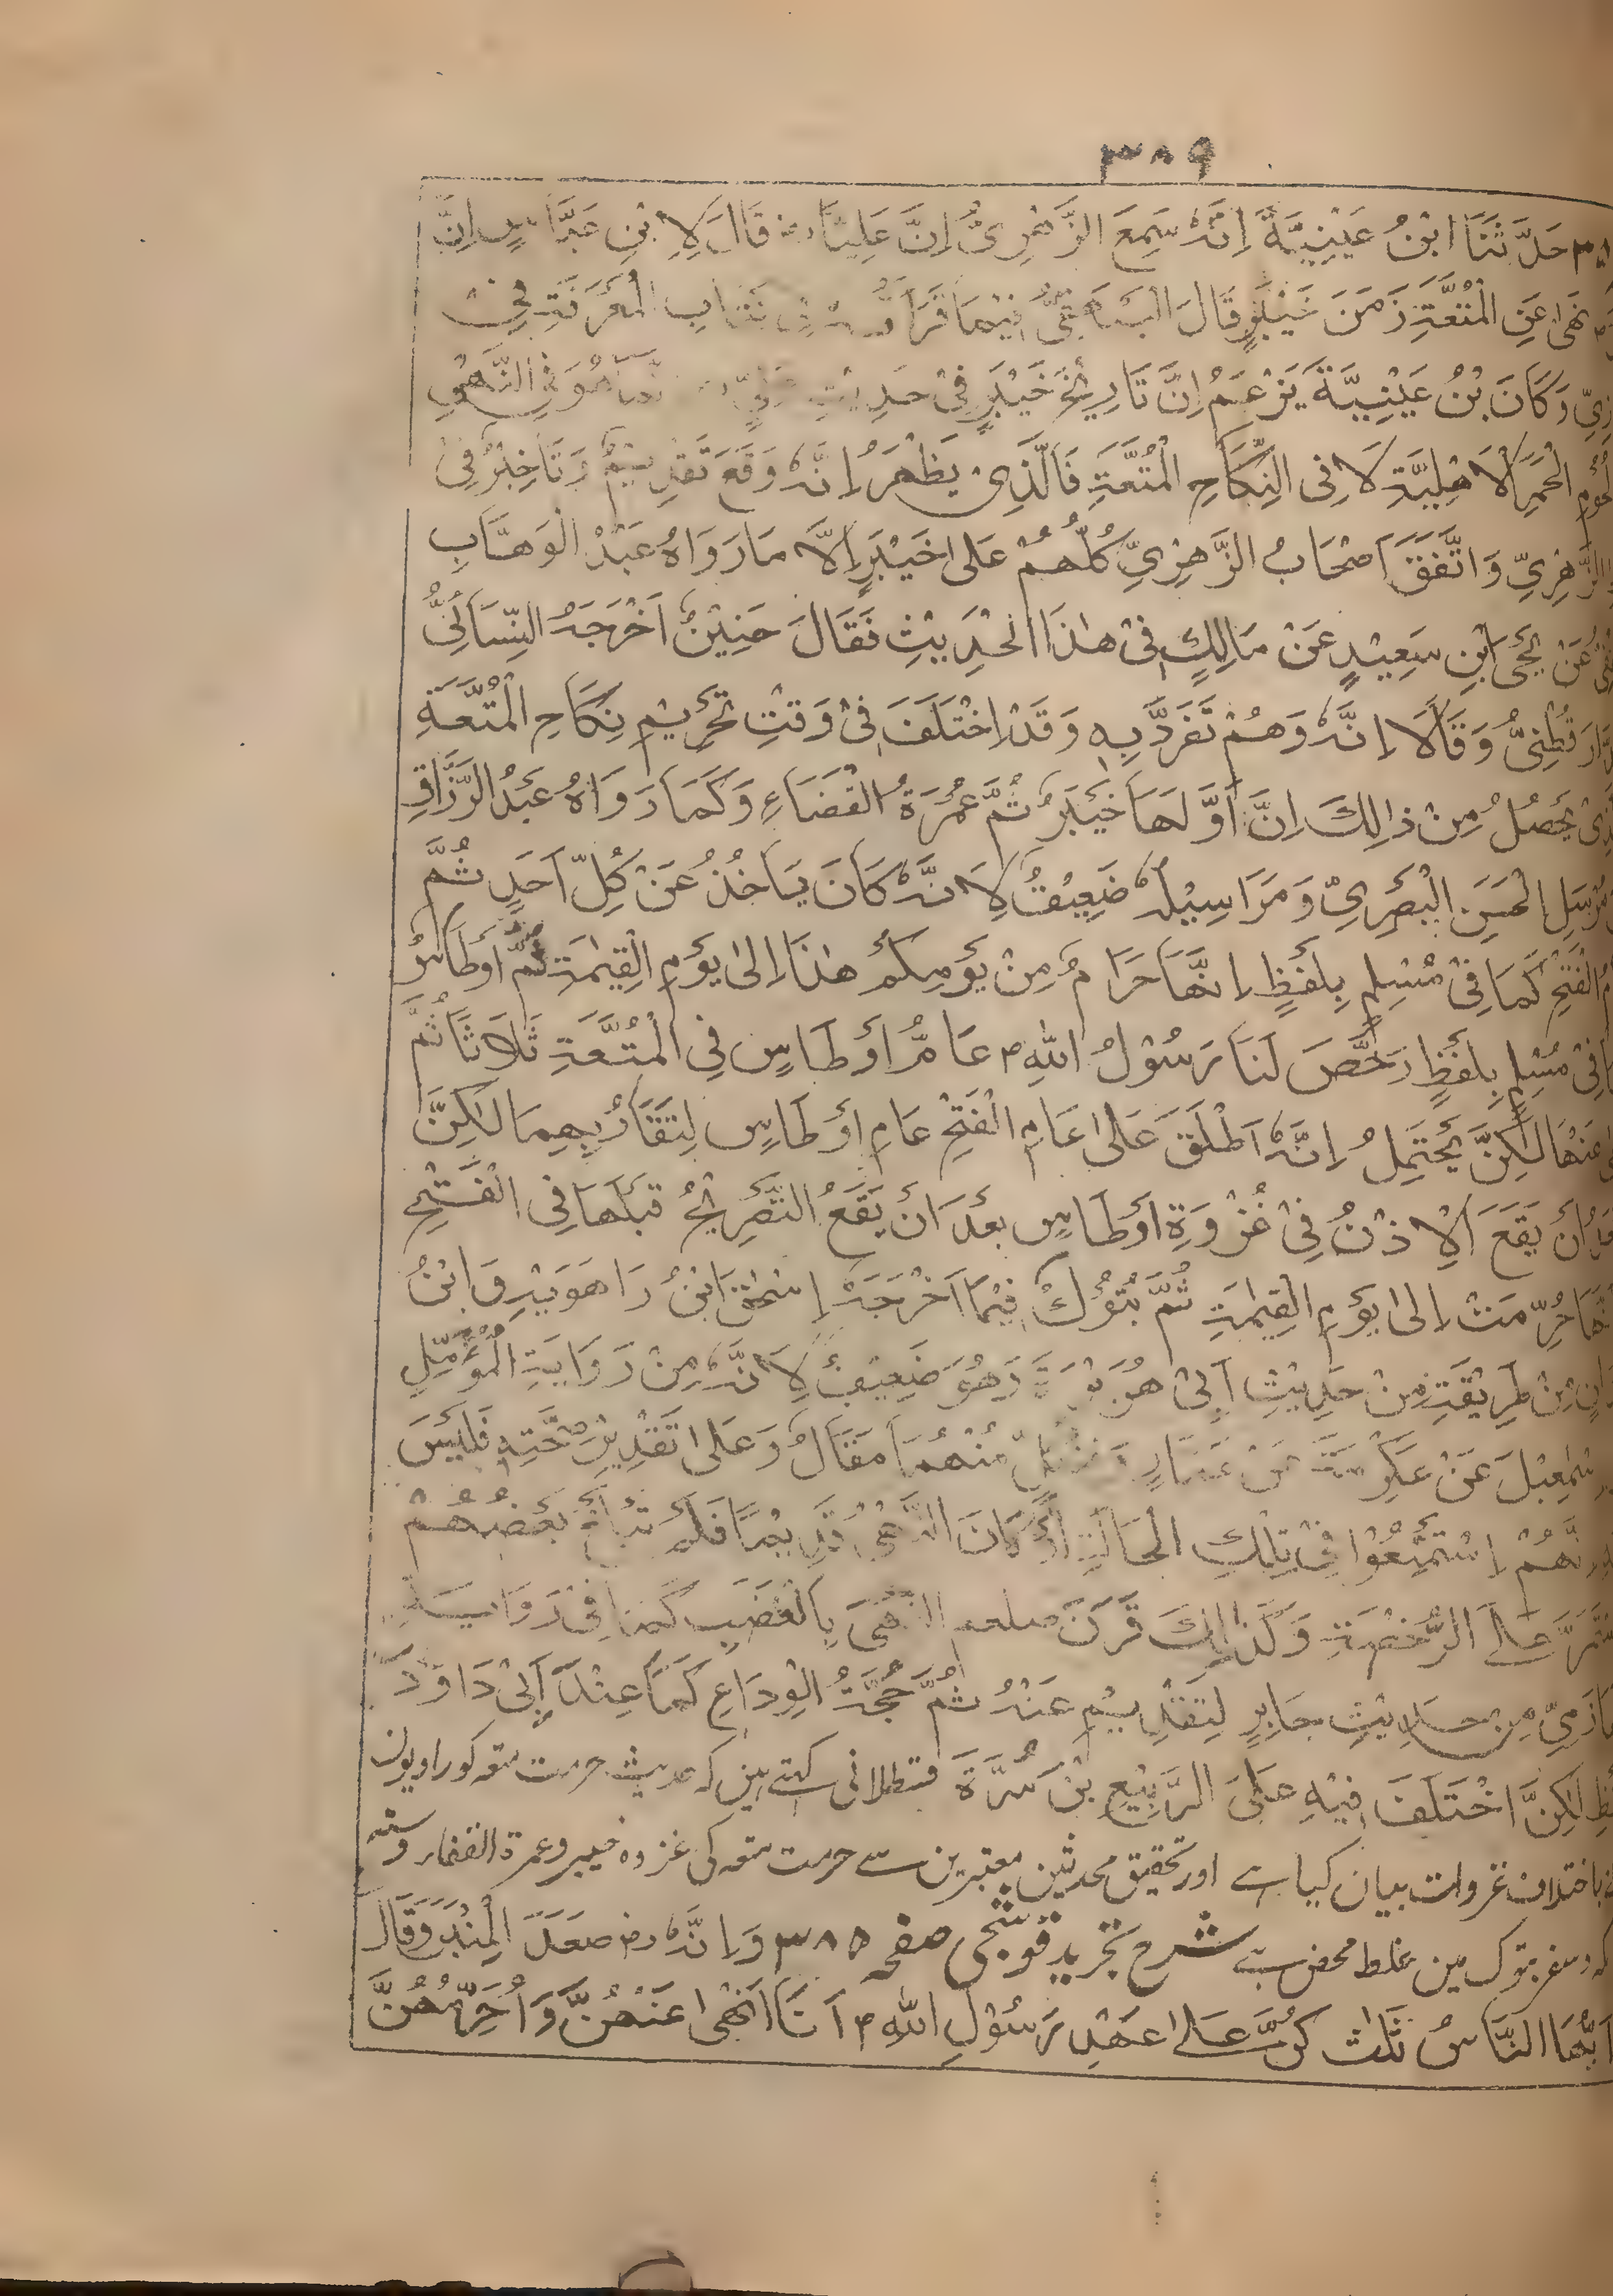 ٣٨٩
حَدَّثَنَا ابْنُ عَيْنِيَّةَ اِنَّهٗ سَمِعَ الزَّهْرِىُّ اِنَّ عَلِيًّا رض قَالَ لِاِبْنِ عَبَّاسٍ اِنَّ
نَهٰى عَنِ الْمُتْعَّةِ زَمَنَ خَيْبَرٍ قَالَ الْبَيْهَقِىُّ فِيْمَا قَرَأْتُهٗ فِى كِتَابِ الْمَعْرَفَةِ فِىْ
وَكَانَ بْنُ عَيْنِيَّةَ يَزْعَمُ اِنَّ تَارِيْخَ خَيْبَرٍ فِىْ حَدِيْثِ عَلِىٍّ اِنَّمَا هُوَ فِى النَّهْىِ
لُحُوْمِ الْحُمَرِ الْاَهْلِيَّةِ لَا فِى النِّكَاحِ الْمُتْعَّةِ فَالَّذِىْ يَظْهَرُ اِنَّهٗ وَقَعَ تَقْدِيْمٌ وَتَاخِيْرٌ فِىْ
الزَّهْرِىِّ وَاتَّفَقَ اَصْحَابُ الزَّهْرِىِّ كُلُّهُمْ عَلٰى خَيْبَرٍ اِلَّا مَا رَوَاهُ عَبْدُ الْوَهَّابِ
عَنْ يَحْيَى ابْنِ سَعِيْدٍ عَنْ مَالِكٍ فِىْ هٰذَا الْحَدِيْثِ فَقَالَ حَنِيْنٌ اَخْرَجَهُ النِّسَائِىُّ
وَالدَّارَقُطْنِىُّ وَقَالَا اِنَّهٗ وَهُمْ تَفَرَّدَ بِهٖ وَقَدْ اِخْتَلَفَ فِىْ وَقْتِ تَحْرِيْمِ نِكَاحِ الْمُتْعَّةِ
يَحْصُلُ مِنْ ذَالِكَ اِنَّ اَوَّلَهَا خَيْبَرُ ثُمَّ عُمْرَةُ الْقَضَاءِ وَكَمَا رَوَاهُ عَبْدُ الرَّزَّاقِ
مُرْسَلِ الْحَسَنِ الْبَصْرِىِّ وَمَرَاسِيْلُهٗ ضَعِيْفُ لِاَنَّهٗ كَانَ يَاخُذُ عَنْ كُلِّ اَحَدٍ ثُمَّ
الْفَتْحِ كَمَا فِىْ مُسْلِمٍ بِلَفْظٍ اِنَّهَا حَرَامٌ مِنْ يَوْمِكُمْ هٰذَا اِلٰى يَوْمِ الْقِيٰمَةِ ثُمَّ اَوْطَاسُ
فِىْ مُسْلِمٍ بِلَفْظٍ رَخَّصَ لَنَا رَسُوْلُ اللّٰهِ ؐ عَامُ اَوْطَاسٍ فِى الْمُتْعَّةِ ثَلَاثًا ثُمَّ
عَنْهَا لٰكِنَّ يَحْتَمِلُ اِنَّهٗ اَطْلَقَ عَلٰى عَامِ الْفَتْحِ عَامِ اَوْطَاسٍ لِتَقَارُبِهِمَا لٰكِنَّ
اَنْ يَقَعَ اَلْاِذْنُ فِىْ غُزْوَةِ اَوْطَاسٍ بَعْدَ اَنْ يَقَعُ التَّصْرِيْحُ قَبْلَهَا فِى الْفَتْحِ
حُرِّمَتْ اِلٰى يَوْمِ الْقِيٰمَةِ ثُمَّ تَبُوْكُ فِيْمَا اَخْرَجَهٗ اِسْحٰقَ ابْنُ رَاهَوَيْهِ وَابْنُ
مِنْ طَرِيْقَتِهٖ مِنْ حَدِيْثِ اَبِىْ هُرَيْرَةَ وَهُوَ ضَعِيْفٌ لِاَنَّهٗ مِنْ رَوَايَةِ الْمُؤَمِّلِ
عَنْ عَكْرَمَةَ عَنْ عَمَّارٍ وَفِىْ كُلٍّ مِنْهُمَا مَقَالٌ وَعَلٰى تَقْدِيْرِ صِحَّتِهٖ فَلَيْسَ
اِسْتَمْتَعُوْا فِىْ تِلْكَ الْحَالَةِ اَوْ كَانَ النَّهْىُ قَدِيْمًا فَلَمْ يَبْلُغْ بَعْضُهُمْ
عَلَى الرُّخْصَةِ وَكَذَالِكَ قَرَنَ صلعم النَّهْىَ بِالْغَضَبِ كَمَا فِىْ رَوَايَةِ
مِنْ حَدِيْثِ جَابِرٍ لِتَقْدِيْمِ عَنْهُ ثُمَّ حُجَّةُ الْوِدَاعِ كَمَا عِنْدَ اَبِىْ دَاوَدَ
لٰكِنَّ اخْتَلَفَ فِيْهِ عَلَى الرَّبِيْعِ بْنِ سُرَّةَ قسطلانی کہتے ہین کہ حدیث حرمت متعہ کو راویون
باختلاف غزوات بیان کیا ہے اور تحقیق محدثین معتبرین سے حرمت متعہ کی غزوہ خیبر و عمرۃ القضاء
کہ سفر تبوک مین غلط محض ہے شرح تجرید قوشجی صفحہ ٣٨٥ وَاِنَّهٗ رض صَعَدَ الْمِنْبَرَ وَقَالَ
اَيُّهَا النَّاسُ ثَلٰثٌ كُنَّ عَلٰى عَهْدِ رَسُوْلِ اللّٰهِ ؐ اَنَا اَنْهٰى عَنْهُنَّ وَاُحَرِّمُهُنَّ